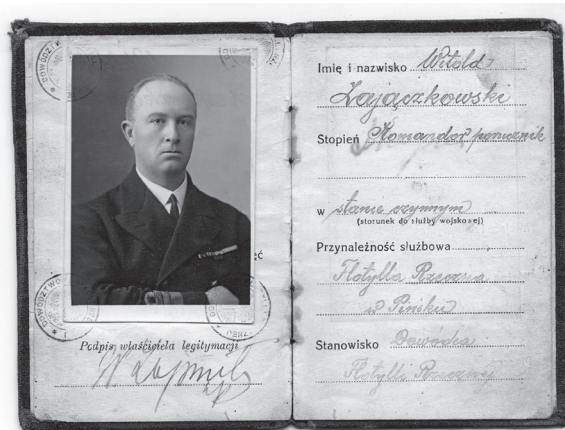 DOWÓDZTWO
ęć
DOWÓDZTWO
Podpis właściciela legitymacji
Imię i nazwisko Witold
Zajączkowski
Stopień Komandor porucznik
w stanie czynnym
(stosunek do służby wojskowej)
Przynależność służbowa
Flotylla Rzeczna
w Pińsku
Stanowisko Dowódca
Flotylli Rzecznej